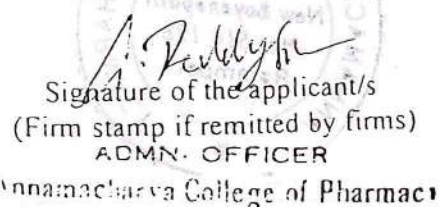 Signature of the applicant/s
(Firm stamp if remitted by firms)
ADMN. OFFICER
College of Pharmacy